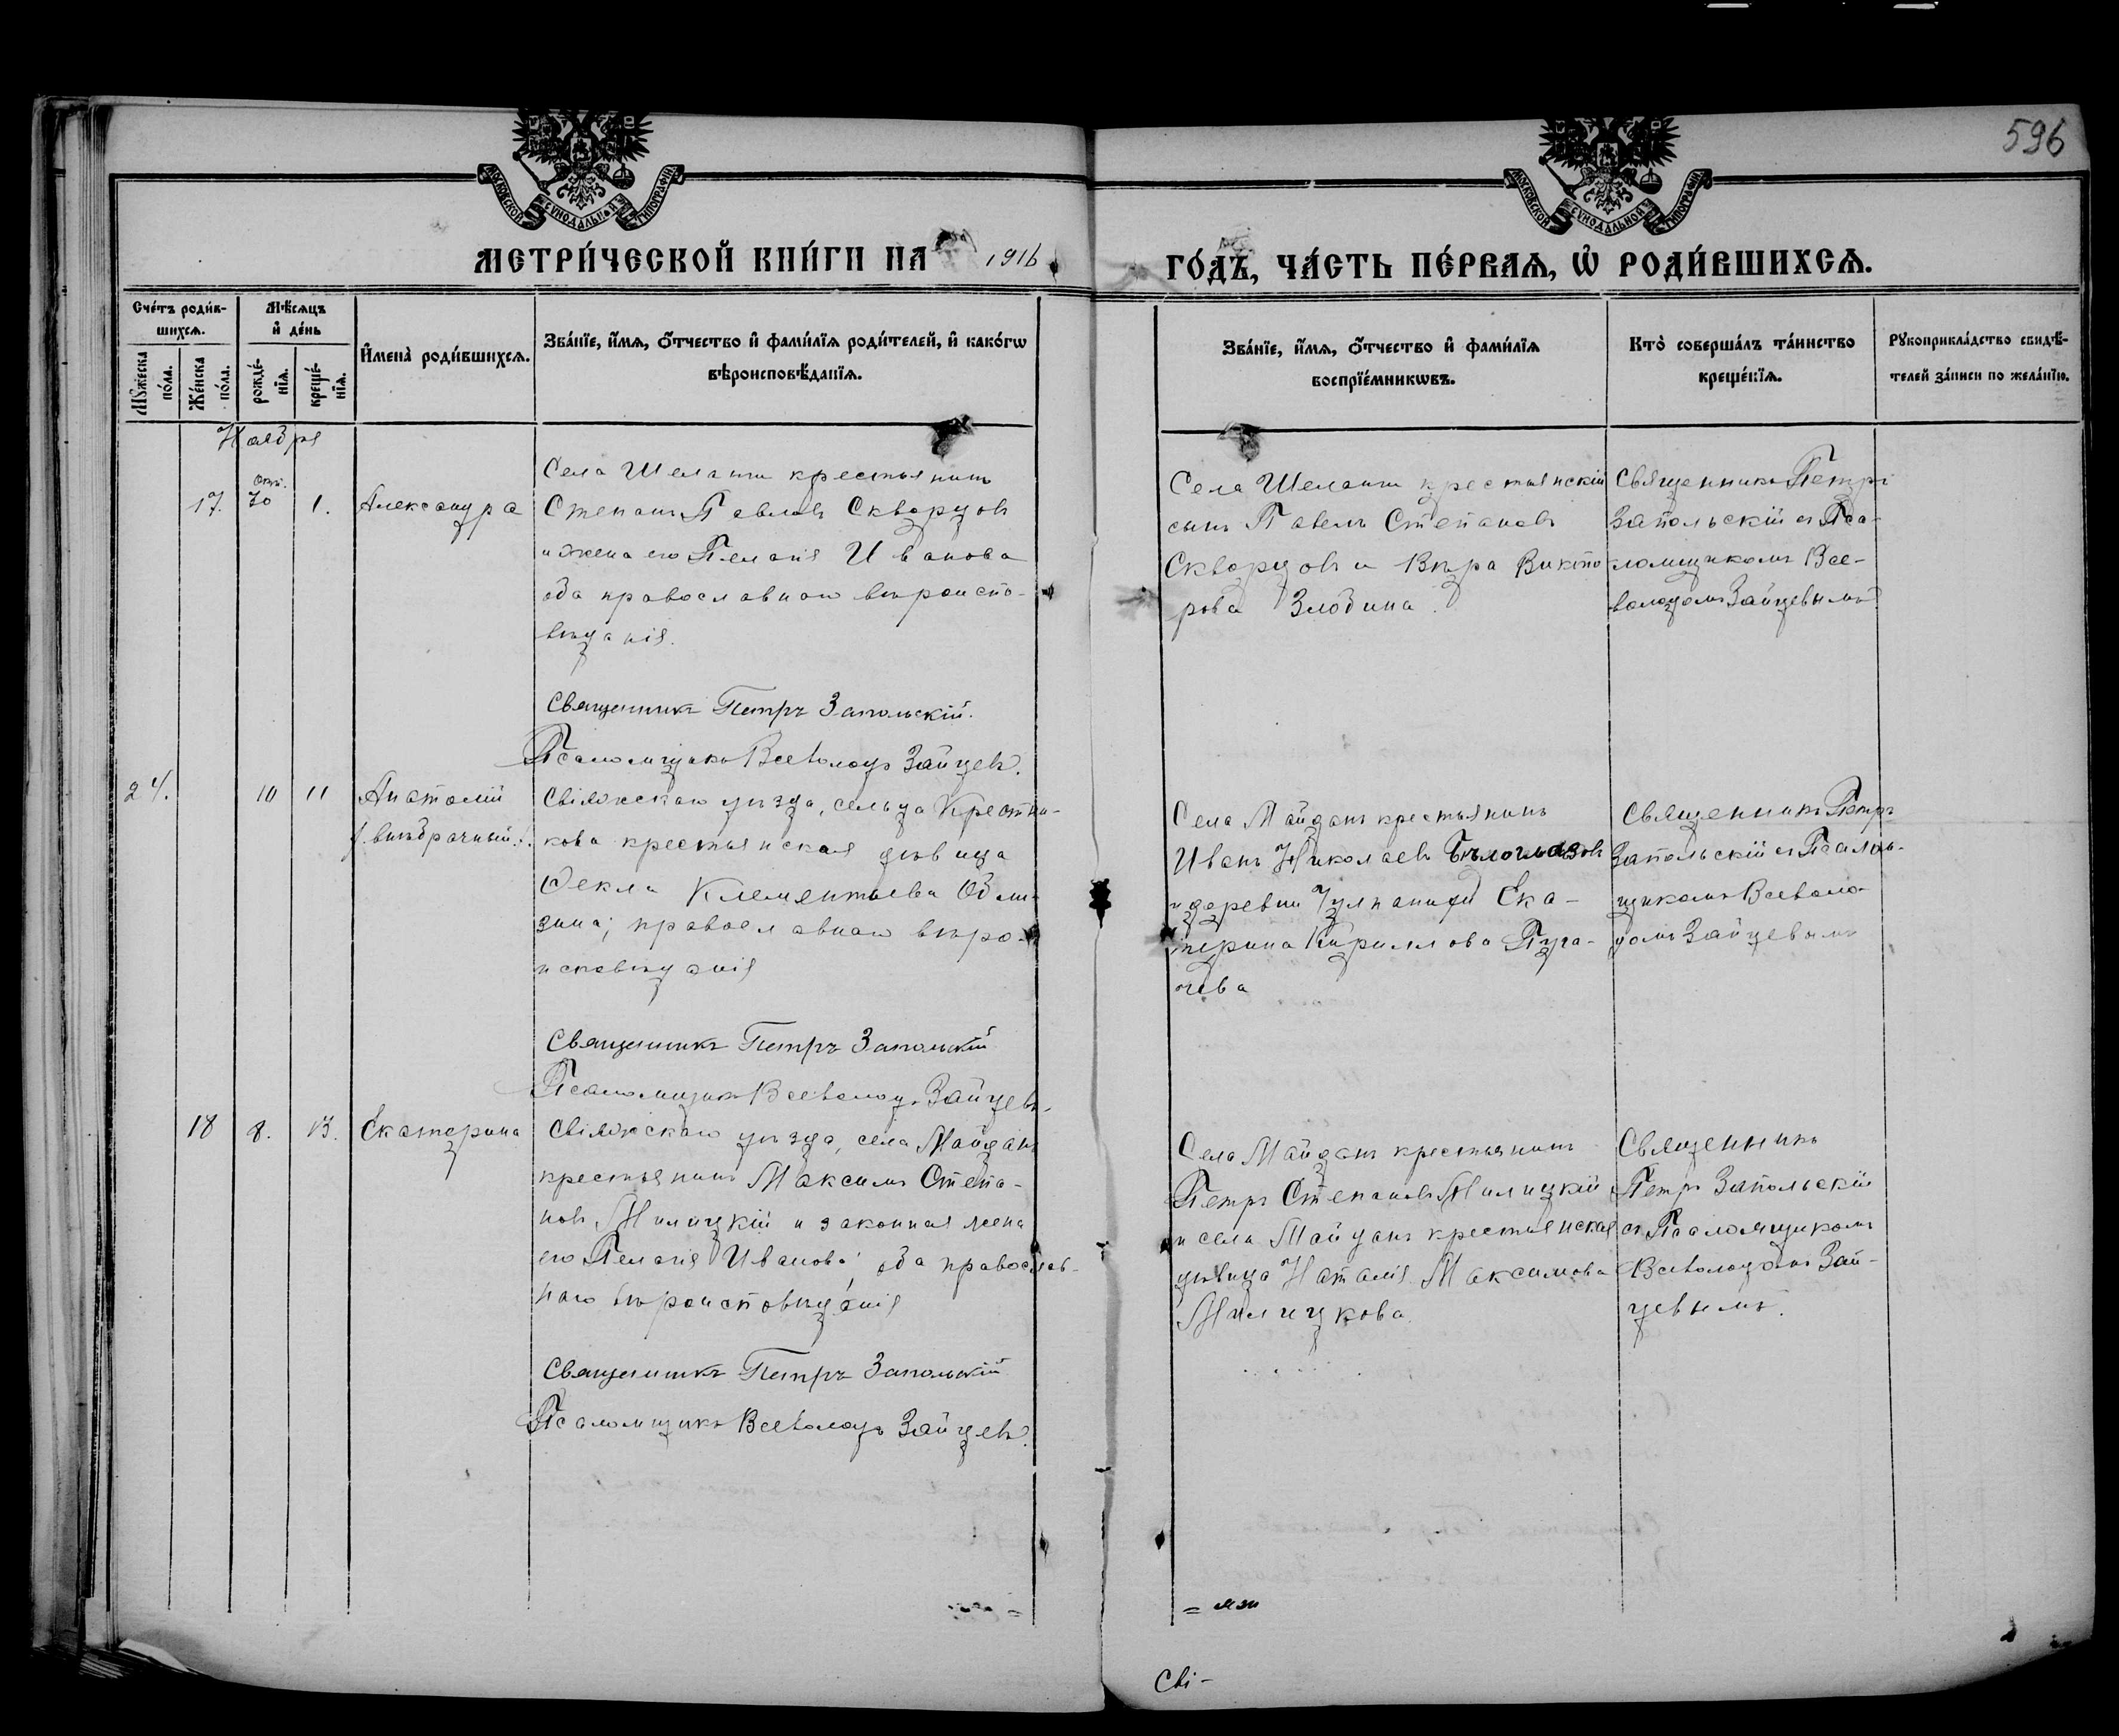 596
МОСКОВСКОЙ СУНОДАЛЬНОЙ ТИПОГРАФІИ
МОСКОВСКОЙ СУНОДАЛЬНОЙ ТИПОГРАФІИ
МЕТРИ́ЧЕСКОЙ КНИ́ГИ НА 1916
ГО́ДЪ, ЧА́СТЬ ПЕ́РВАѦ, Ѡ҆ РОДИ́ВШИХСѦ.
Сче́тъ роди́в-
шихсѧ.
Мꙋжеска
по́ла.
Же́нска
по́ла.
Мѣ́сѧцъ
и҆ де́нь
рожде́-
нїѧ.
креще́-
нїѧ.
И҆мена̀ роди́вшихсѧ.
Зва́нїе, и҆́мѧ, ѻ҆́тчество и҆ фами́лїѧ роди́телей, и҆ како́гѡ
вѣроисповѣ́данїѧ.
Зва́нїе, и҆́мѧ, ѻ҆́тчество и҆ фами́лїѧ
воспрїе́мникѡвъ.
Кто̀ соверша́лъ та́инство
креще́нїѧ.
Рꙋкоприкла́дство свидѣ́-
телей за́писи по жела́нїю.
Ноября
17.
Окт.
30
1.
Александра
Села Шеланги крестьянинъ
Степанъ Павловъ Скворцовъ
и жена его Пелагія Иванова
оба православнаго вѣроиспо-
вѣданія.
Священникъ Петръ Запольскій.
Псаломщикъ Всеволодъ Зайцевъ.
Села Шеланги крестьянскій
сынъ Павелъ Степановъ
Скворцовъ и Вѣра Викто
рова Злобина.
Священникъ Петръ
Запольскій съ Пса-
ломщикомъ Все-
володомъ Зайцевымъ
24.
10
11
Анатолій
/. внѣбрачный./.
Свіяжскаго уѣзда, сельца
кова крестьянская дѣвица
Ѳекла Клементьева
зина; православнаго вѣро-
исповѣданія
Священникъ Петръ Запольскій
Псаломщикъ Всеволодъ Зайцевъ.
Села Майданъ крестьянинъ
Иванъ Николаевъ Бѣлоглазовъ
и деревни Ека-
терина Кириллова Пуга-
чева
Священникъ Петръ
Запольскій съ Псалом-
щикомъ Всеволо-
домъ Зайцевымъ
18
8.
13.
Екатерина
Свіяжскаго уѣзда, села Майданъ
крестьянинъ Максимъ Степа-
новъ Милицкій и законная жена
его Пелагія Иванова; оба православ-
наго вѣроисповѣданія
Священникъ Петръ Запольскій
Псаломщикъ Всеволодъ Зайцевъ.
Села Майданъ крестьянинъ
Петръ Степановъ Милицкій
и села Майданъ крестьянская
дѣвица Наталія Максимова
Милицкова.
Священникъ
Петръ Запольскій
съ Псаломщикомъ
Всеволодомъ Зай-
цевымъ.
Сві-